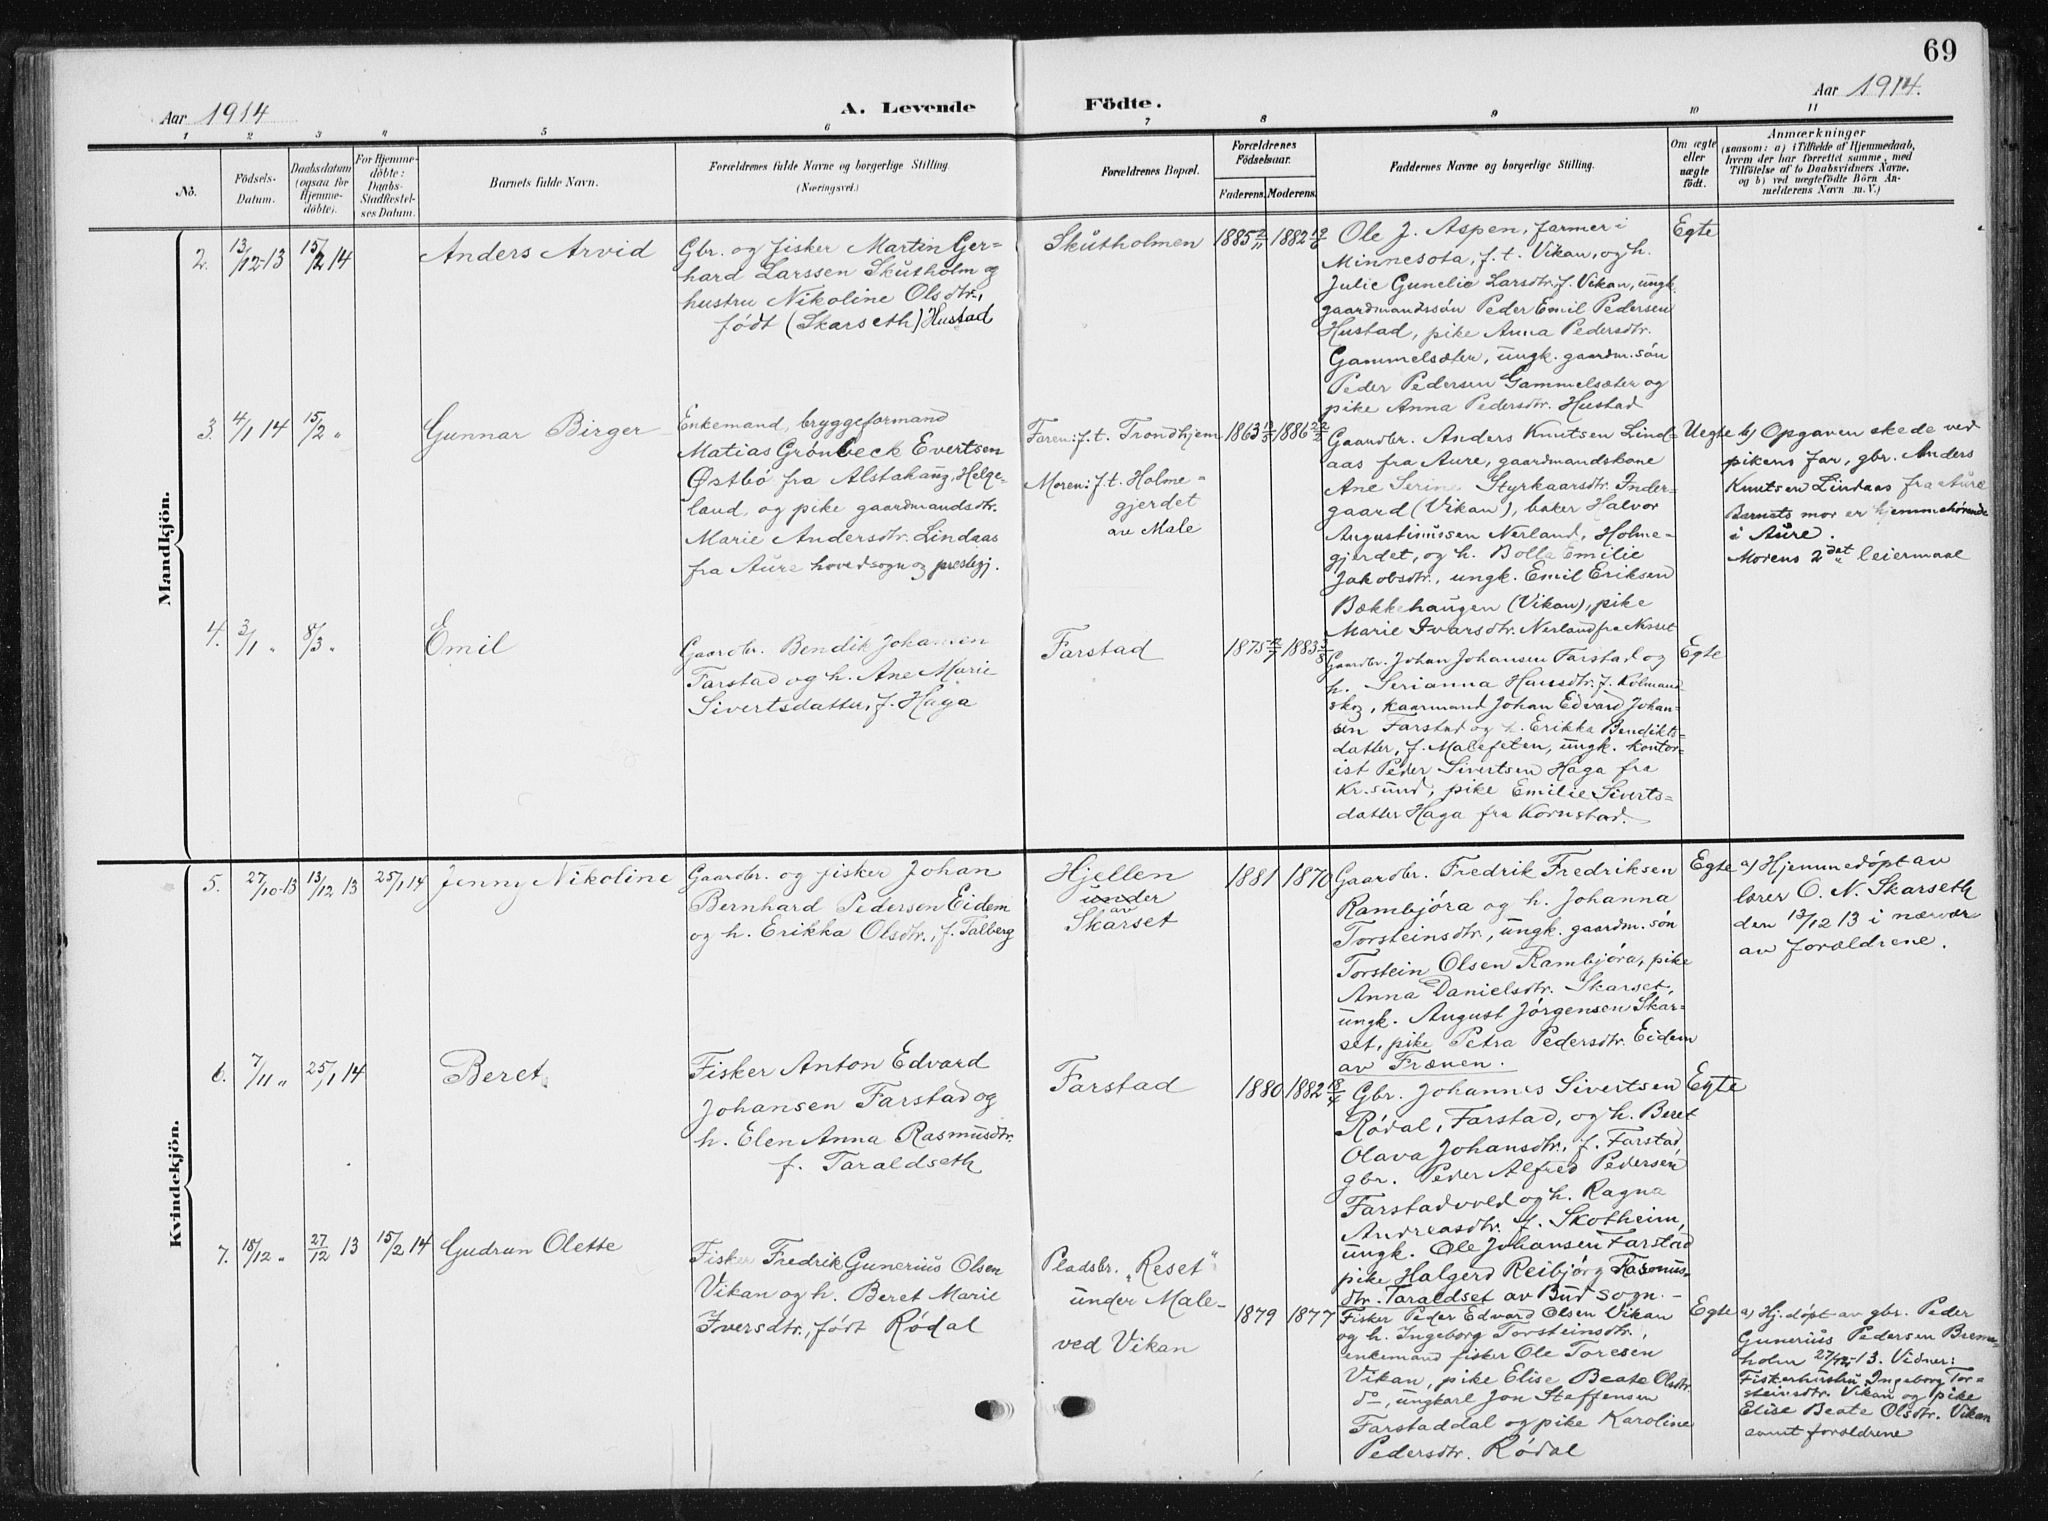 69
Aar 1914
A. Levende
Födte.
Aar 1914.
1 2 3 4 5 6 7 8 9 10 11
No.
Födsels-
Datum.
Daabsdatum
(ogsaa for
Hjemme-
döbte).
For Hjemme-
döbte:
Daabs-
Stadfæstel-
ses Datum.
Barnets fulde Navn.
Forældrenes fulde Navne og borgerlige Stilling.
(Næringsvei.)
Forældrenes Bopæl.
Forældrenes
Födselsaar.
Faderens. Moderens.
Faddernes Navne og borgerlige Stilling.
Om ægte
eller
uægte
födt.
Anmærkninger
(saasom: a) i Tilfælde af Hjemmedaab,
hvem der har forrettet samme, med
Tilföielse af to Daabsvidners Navne,
og b) ved uægtefödte Börn An-
melderens Navn m. V.)
Mandkjön.
2. 13/12-13 15/2 14
Anders Arvid
Gbr. og fisker Martin Ger-
hard Larssen Skutholm og
hustru Nikoline Olsdtr.,
født (Skarseth) Hustad
Skutholmen
1885 2/11 1882 19/6
Ole J. Aspen, farmer i
Minnesota, f. t. Vikan, og h.
Julie Gunelie Larsdtr, f. Vikan, ungk.
gaardmandssøn Peder Emil Pedersen
Hustad, pike Anna Pedersdtr.
Gammelsæter, ungk. gaardm.søn
Peder Pedersen Gammelsæter og
pike Anna Pedersdtr. Hustad
Egte
3. 4/1 14 15/2 "
Gunnar Birger
Enkemand, bryggeformand
Matias Grönbeck Evertsen
Østbö fra Alstahaug, Helge-
land, og pike gaardmandsdtr.
Marie Andersdtr. Lindaas
fra Aure hovedsogn og prestegj.
Faren: f. t. Trondhjem
Moren: f. t. Holme-
gjerdet
av Male
1863 1886
Gaardbr. Anders Knutsen Lind-
aas fra Aure, gaardmandskone
Ane Serine Styrkaarsdtr. Inder-
gaard (Vikan), baker Halvor
Augustinussen Nerland, Holme-
gjerdet, og h. Bolla Emilie
Jakobsdtr., ungk. Emil Eriksen
Bækkehaugen (Vikan), pike
Marie Ivarsdtr. Nerland fra Nesset
Uegte
b) Opgaven skede ved
pikens far, gbr. Anders
Knutsen Lindaas fra Aure
Barnets mor er hjemmehørende
i Aure.
Morens 2det leiermaal
4. 3/1 " 8/3 "
Emil
Gaardbr. Bendik Johansen
Farstad og h. Ane Marie
Sivertsdatter, f. Haga
Farstad
1875 1883 3/8
Gaardbr. Johan Johansen Farstad og
h. Serianna Hansdtr. f. Kolmand-
skog, kaarmand Johan Edvard Johan-
sen Farstad og h. Erikka Bendikts-
datter, f. Malefeten, ungk. kontor-
ist Peder Sivertsen Haga fra
Kr.sund, pike Emilie Siverts-
datter Haga fra Kornstad.
Egte
Kvindekjön.
5. 27/10-13 13/12 13 25/1 14
Jenny Nikoline
Gaardbr. og fisker Johan
Bernhard Pedersen Eidem
og h. Erikka Olsdtr., f. Talberg
Hjellen
under
av
Skarset
1881 1870
Gaardbr. Fredrik Fredriksen
Rambjöra og h. Johanna
Torsteinsdtr., ungk. gaardm.søn
Torstein Olsen Rambjöra, pike
Anna Danielsdtr. Skarset,
ungk. August Jörgensen Skar-
set, pike Petra Pedersdtr. Eidem
av Frænen.
Egte
a) Hjemmedøpt av
lærer O. N. Skarseth
den 13/12 13 i nærvær
av forældrene.
6. 7/11 " 25/1 14
Beret
Fisker Anton Edvard
Johansen Farstad og
h. Elen Anna Rasmusdtr.
f. Taraldseth
Farstad
1880 1882 18/4
Gbr. Johannes Sivertsen
Rödal, Farstad, og h. Beret
Olava Johansdtr., f. Farstad,
gbr. Peder Alfred Pedersen
Farstadvold og h. Ragna
Andreasdtr. f. Skotheim,
ungk. Ole Johansen Farstad
pike Halgerd Reibjörg Rasmus-
dtr. Taraldset av Bud sogn.
Egte
7. 18/12 " 27/12 13 15/2 14
Gudrun Olette
Fisker Fredrik Gunerius Olsen
Vikan og h. Beret Marie
Iversdtr., født Rödal
Pladsbr. „Reset"
under Male-
ved Vikan
1879 1877
Fisker Peder Edvard Olsen Vikan
og h. Ingeborg Torsteinsdtr.,
enkemand fisker Ole Toresen
Vikan, pike Elise Beate Olsdtr.
do, ungkarl Jon Steffensen
Farstaddal og pike Karoline
Pedersdtr. Rödal
Egte
a) Hj.døpt av gbr. Peder
Gunerius Pedersen Brem-
holm 27/12-13. Vidner:
Fiskerhustru Ingeborg Tor-
steinsdtr. Vikan og pike
Elise Beate Olsdtr. Vikan
samt forældrene